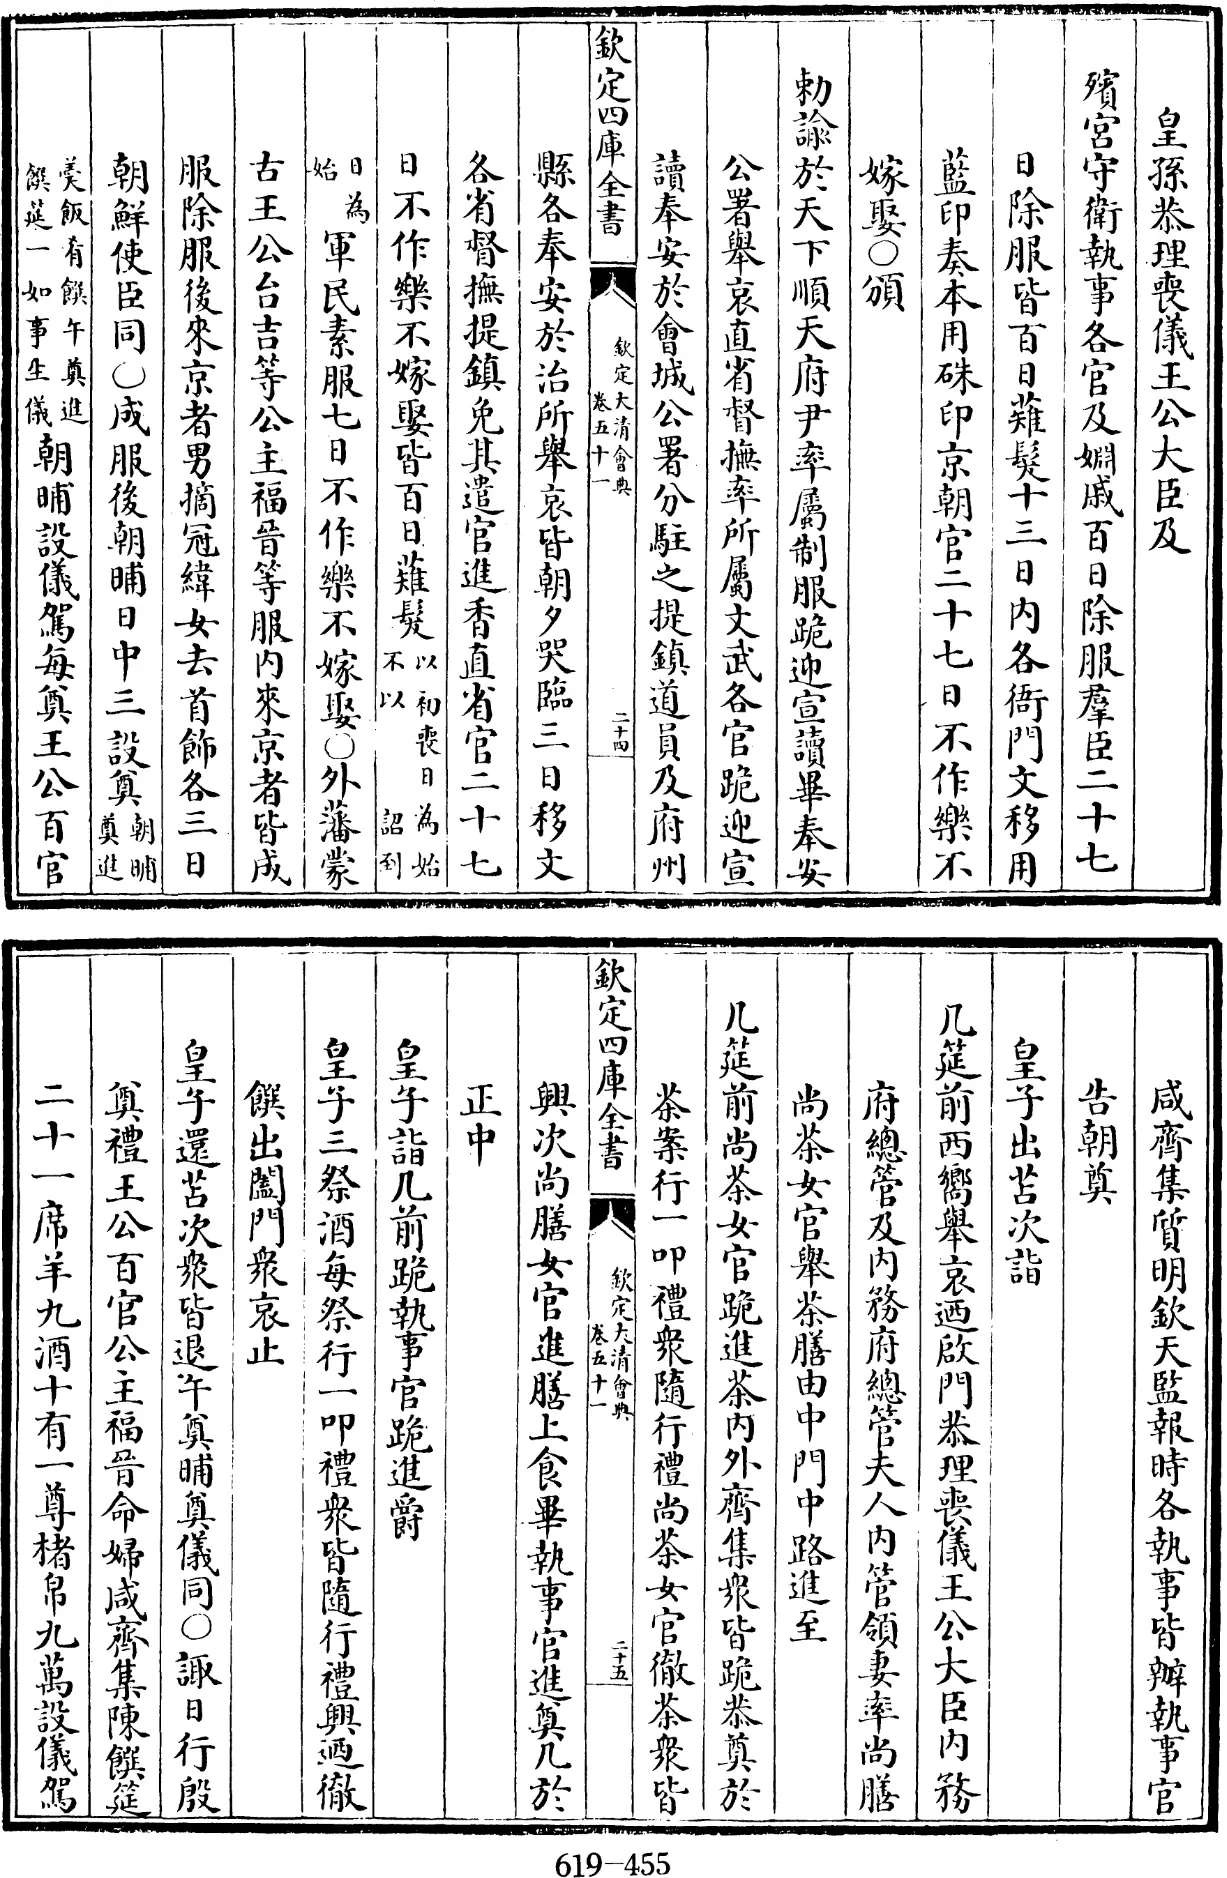 皇孫恭理喪儀王公大臣及
殯宫守衛執事各官及婣戚百日除服羣臣二十七
日除服皆百日薙髮十三日内各衙門文移用
藍印奏本用硃印京朝官二十七日不作樂不
嫁娶○頒
勅諭於天下順天府尹率屬制服跪迎宣讀畢奉安
公署舉哀直省督撫率所屬文武各官跪迎宣
讀奉安於會城公署分駐之提鎮道員及府州
欽定四庫全書
欽定大清會典
卷五十一
二十四
縣各奉安於治所舉哀皆朝夕哭臨三日移文
各省督撫提鎮免其遣官進香直省官二十七
日不作樂不嫁娶皆百日薙髮以初喪日為始不以詔到
日為始軍民素服七日不作樂不嫁娶○外藩蒙
古王公台吉等公主福晉等服内來京者皆成
服除服後來京者男摘冠緯女去首飾各三日
朝鮮使臣同○成服後朝晡日中三設奠朝晡奠進
羮飯肴饌午奠進饌筵一如事生儀朝晡設儀駕每奠王公百官
咸齊集質明欽天監報時各執事皆辦執事官
告朝奠
皇子出苫次詣
几筵前西嚮舉哀迺啟門恭理喪儀王公大臣内務
府總管及内務府總管夫人内管領妻率尚膳
尚茶女官舉茶膳由中門中路進至
几筵前尚茶女官跪進茶内外齊集衆皆跪恭奠於
茶案行一叩禮衆隨行禮尚茶女官徹茶衆皆
欽定四庫全書
欽定大清會典
卷五十一
二十五
興次尚膳女官進膳上食畢執事官進奠几於
正中
皇子詣几前跪執事官跪進爵
皇子三祭酒每祭行一叩禮衆皆隨行禮興迺徹
饌出闔門衆哀止
皇子還苫次衆皆退午奠晡奠儀同○諏日行殷
奠禮王公百官公主福晉命婦咸齊集陳饌筵
二十一席羊九酒十有一尊楮帛九萬設儀駕
619-455